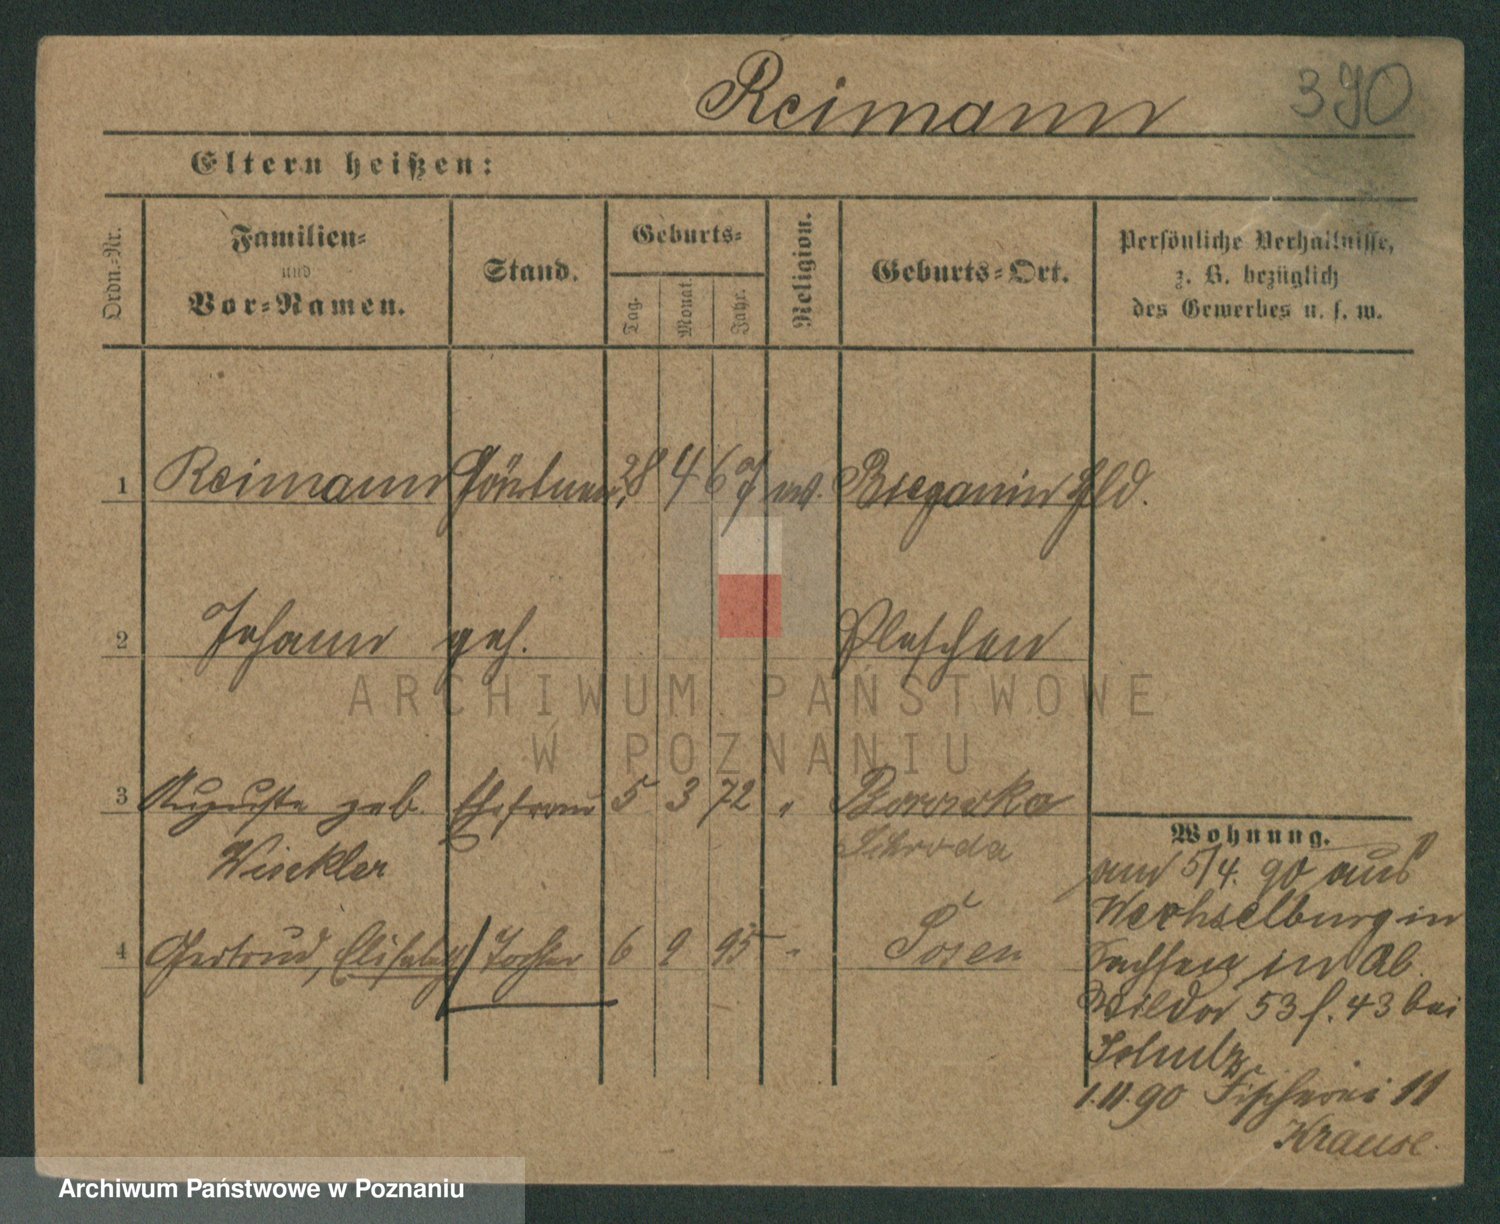 Reimann 390
Eltern heißen:
Ordn.-Nr.
Familien-
und
Vor-Namen.
Stand.
Geburts-
Tag.
Monat.
Jahr.
Religion.
Geburts-Ort.
Persönliche Verhältnisse,
z. B. bezüglich
des Gewerbes u. s. w.
1 Reimann Gärtner 28 4 67 ev. Bieganin
2 Johann geh. Pleschen
3 Auguste geb. Ehefrau 5 3 72 " Borowka
Winkler Schroda
4 Gertrud, Elisabeth Tochter 6 9 95 " Posen
Wohnung.
am 5/4. 90 aus
Wechselburg in
Sachsen in Ob.
Wilda 53 f. 43 bei
Schulz
1.11.90 Fischerei 11
Krause.
ARCHIWUM PAŃSTWOWE
W POZNANIU
Archiwum Państwowe w Poznaniu